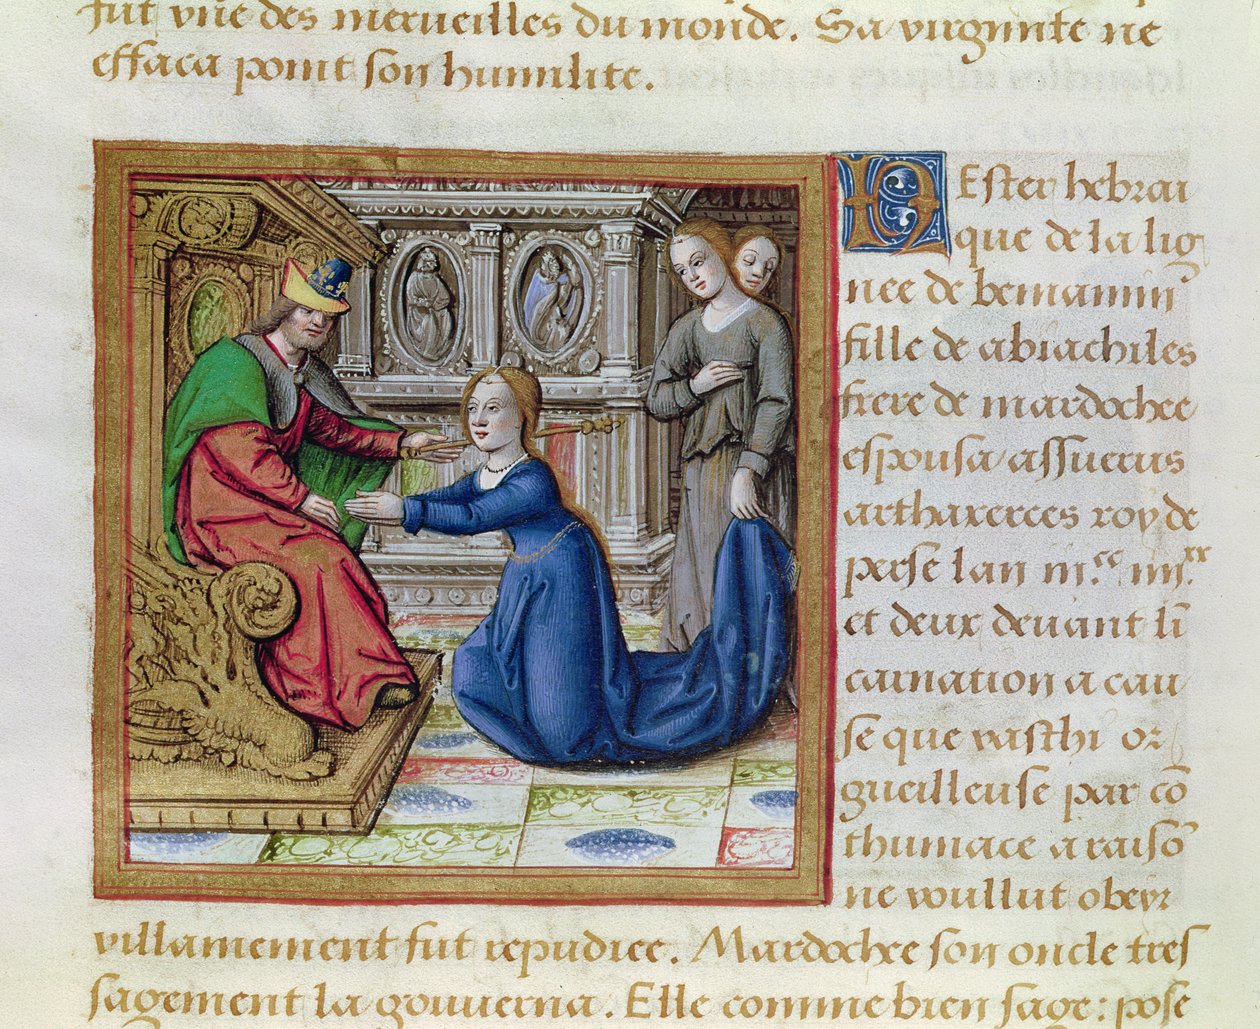 fut vne des merueilles du monde. Sa virginite ne
effaca point son humilite.
Hester hebrai
que de la lig
nee de beniamin
fille de abiachiles
frere de mardochee
espousa assuerus
arthaxerces roy de
perse lan iii.cc iiii.xx
et deux deuant li
carnation a cau
se que vasthi or
gueilleuse par cō
thumace a raisō
ne voullut obeyr
villainement fut repudiee. Mardochee son oncle tres
sagement la gouuerna. Elle comme bien sage: pose